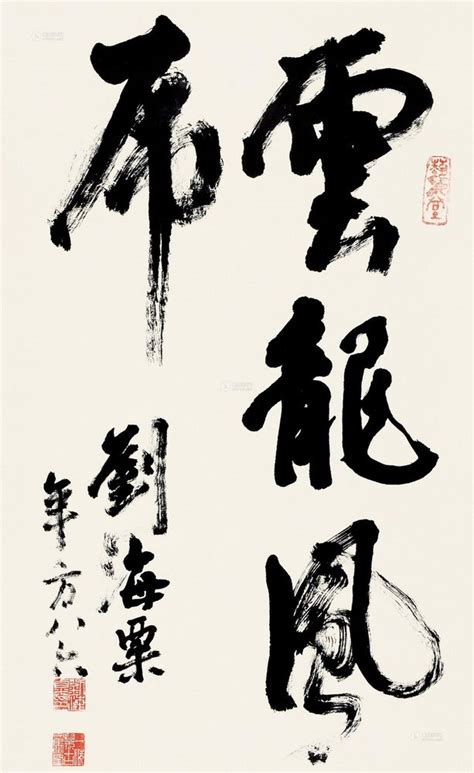 雲龍風
虎
劉海粟
年方八六